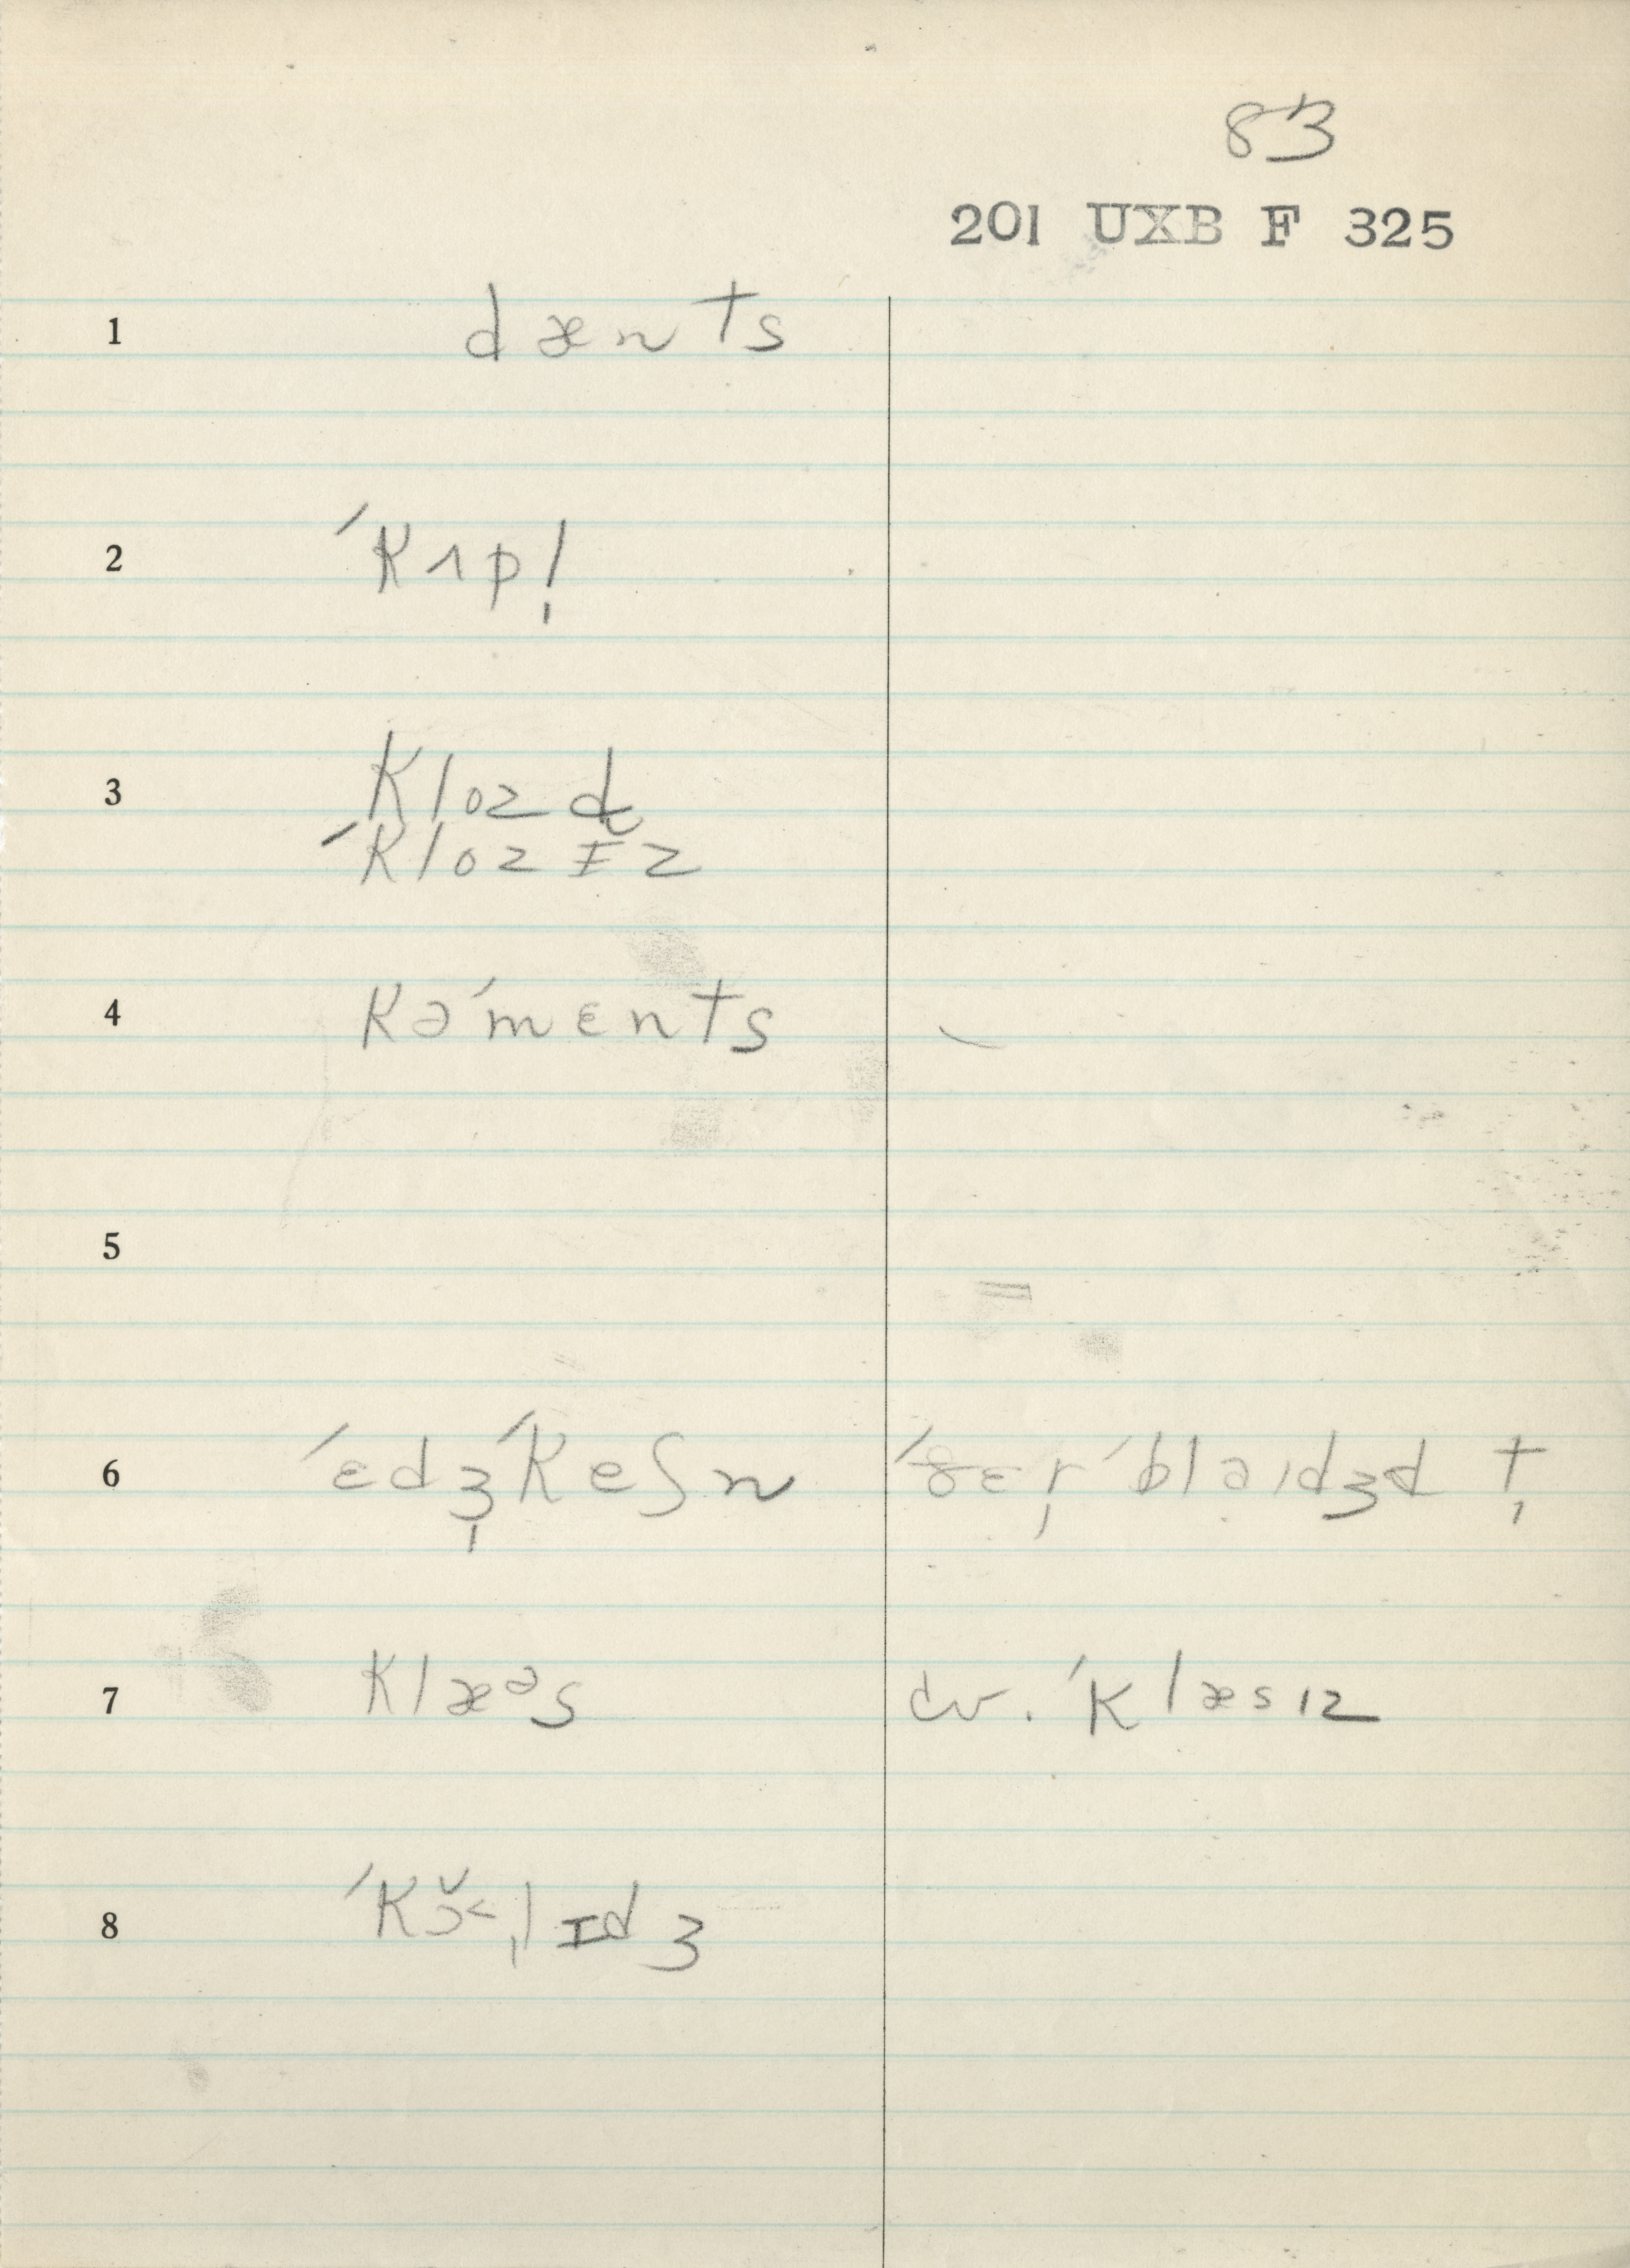 83
201 UXB F 325
1 dænts
2 ˈkʌpl̩
3 klozd̥
ˈklozɪz
4 kəˈmɛnts
5
6 ˈɛdʒ̩ˈkeʃn ˈðɛɚ̩ ˈblaɪdʒd t̩
7 klæᵊs cv. ˈklæsɪz
8 ˈkɔ̆˂l̩ɪdʒ